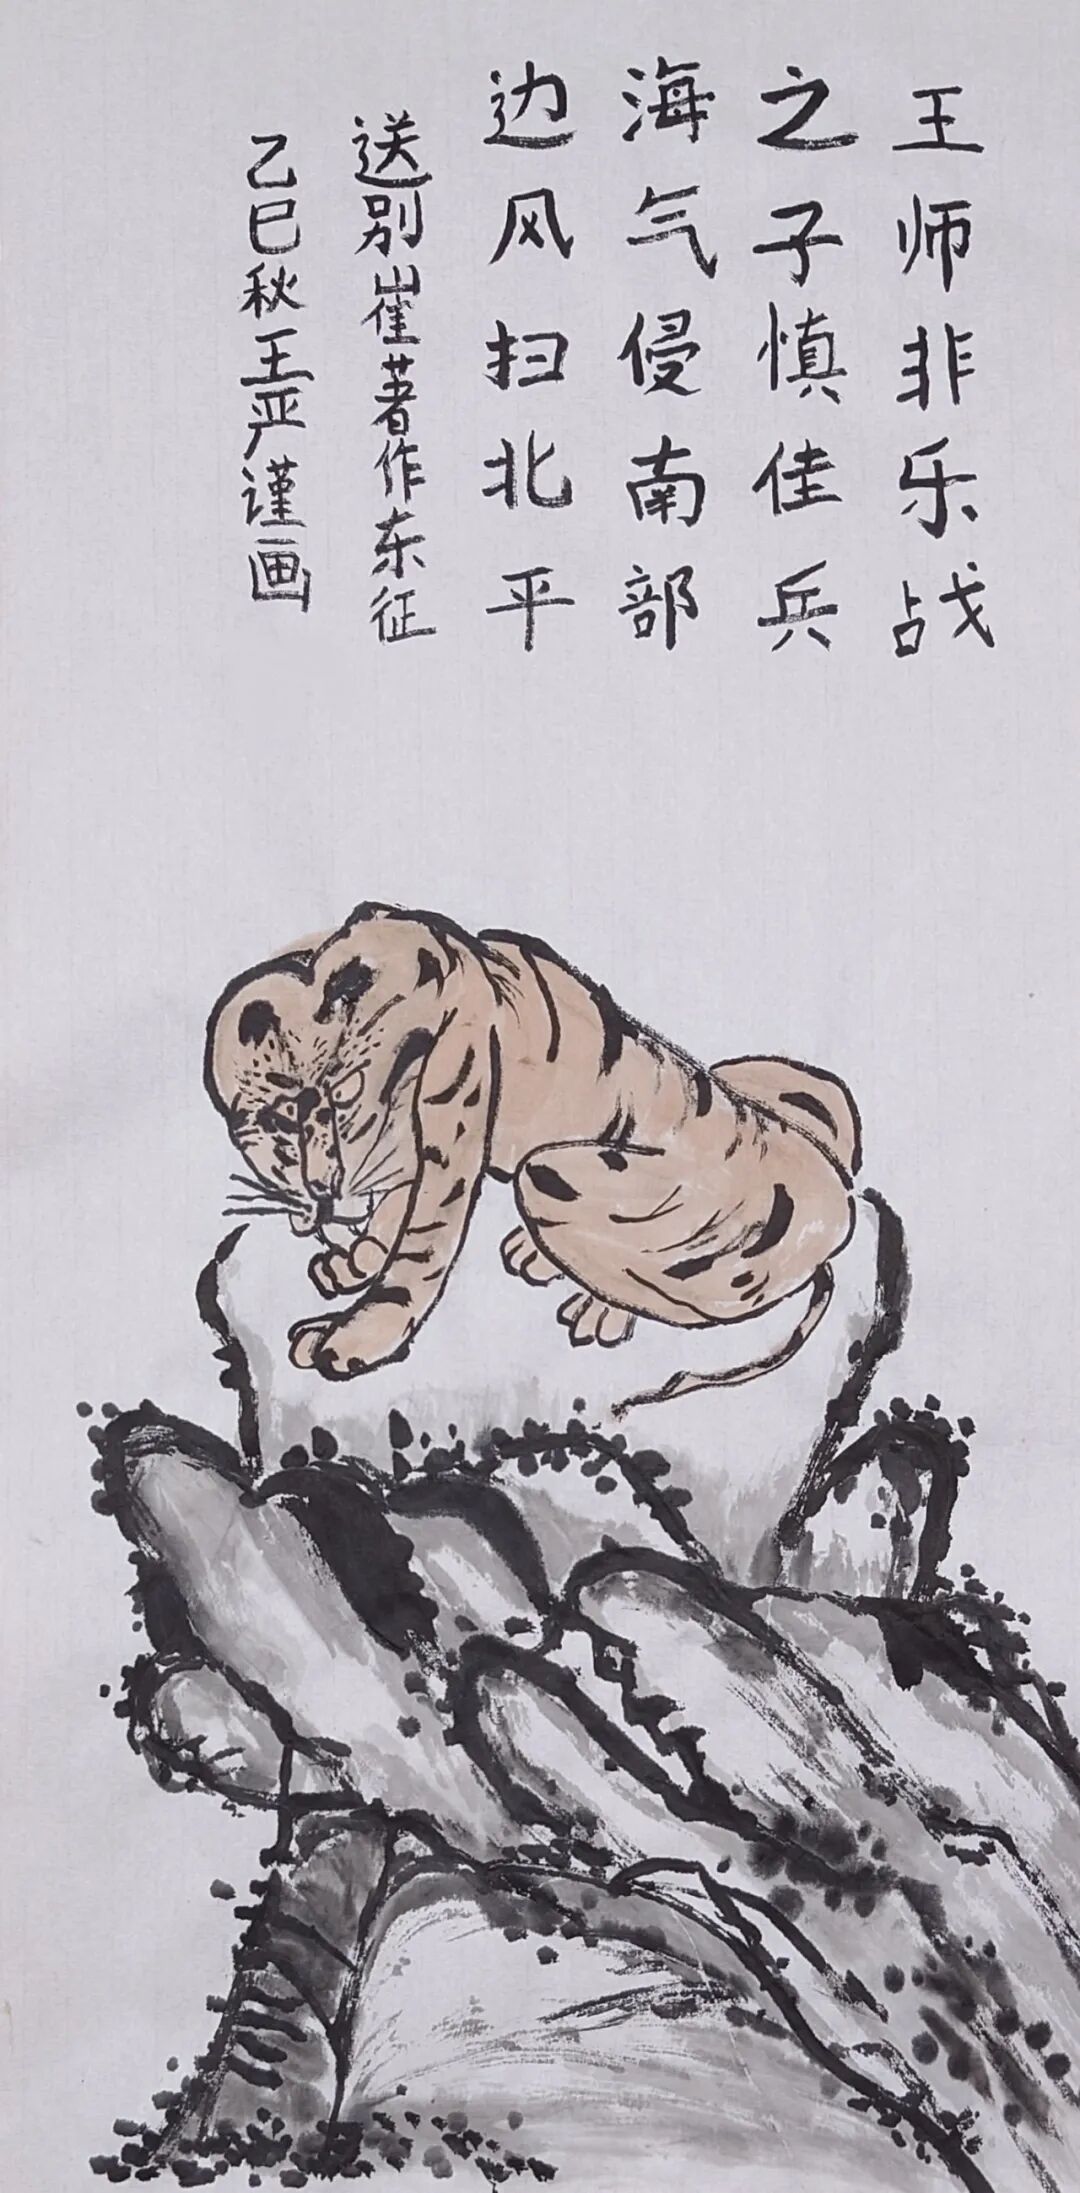 王师非乐战
之子慎佳兵
海气侵南部
边风扫北平
送别崔著作东征
乙巳秋王严谨画